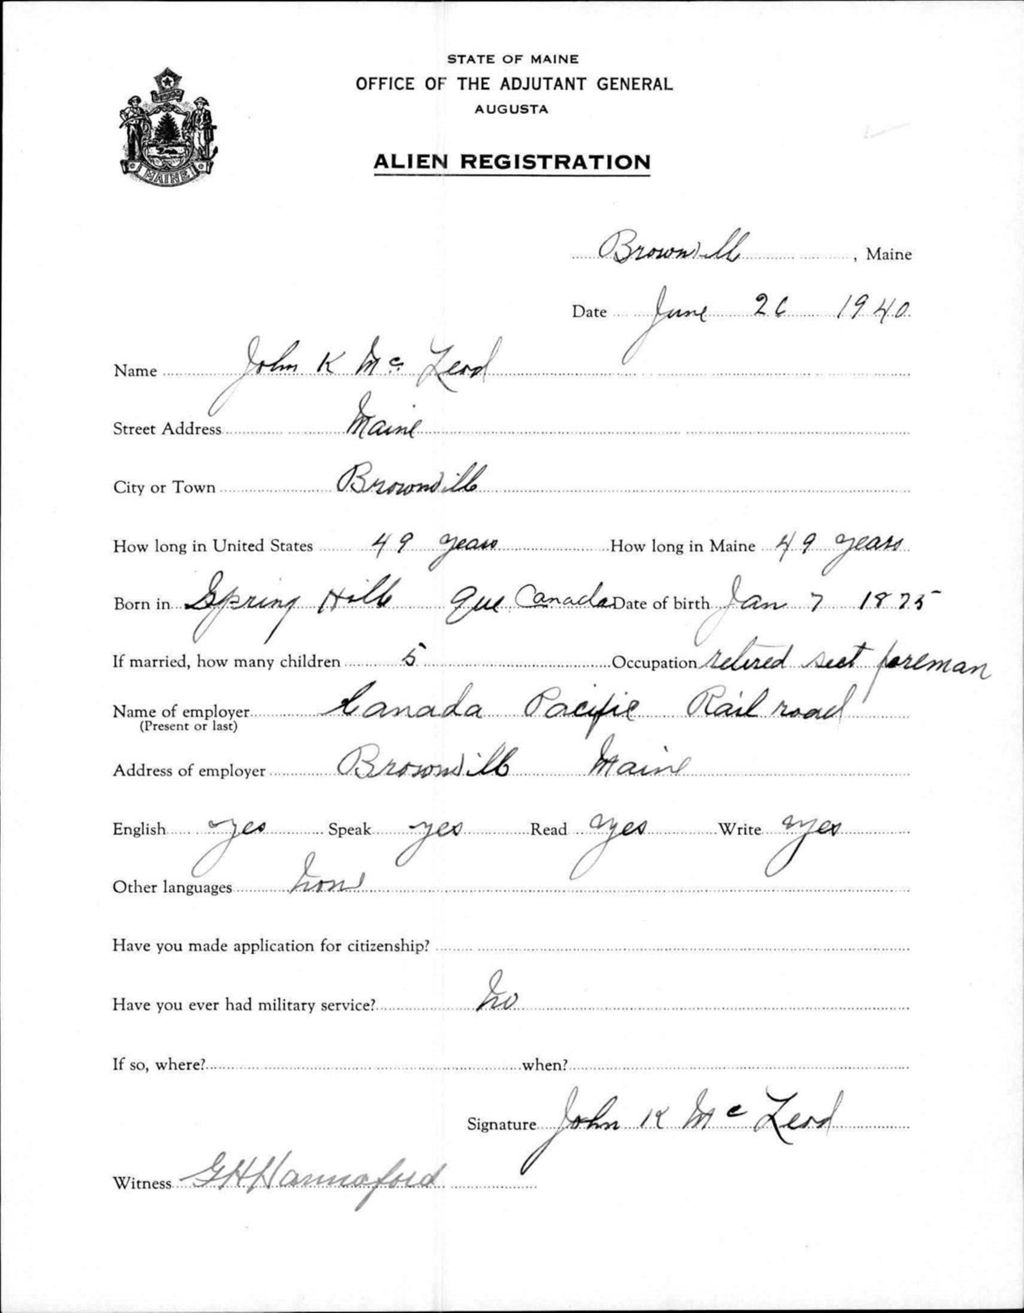 STATE OF MAINE
OFFICE OF THE ADJUTANT GENERAL
AUGUSTA
MAINE
ALIEN REGISTRATION
Brownville, Maine
Date June 26 1940
Name John K McLeod
Street Address Maine
City or Town Brownville
How long in United States 49 years How long in Maine 49 years
Born in Spring Hill Que. Canada Date of birth Jan 7 1875
If married, how many children 5 Occupation retired sect foreman
Name of employer Canada Pacific Rail road
(Present or last)
Address of employer Brownville Maine
English yes Speak yes Read yes Write yes
Other languages None
Have you made application for citizenship?
Have you ever had military service? No
If so, where? when?
Signature John K McLeod
Witness G H Hannaford